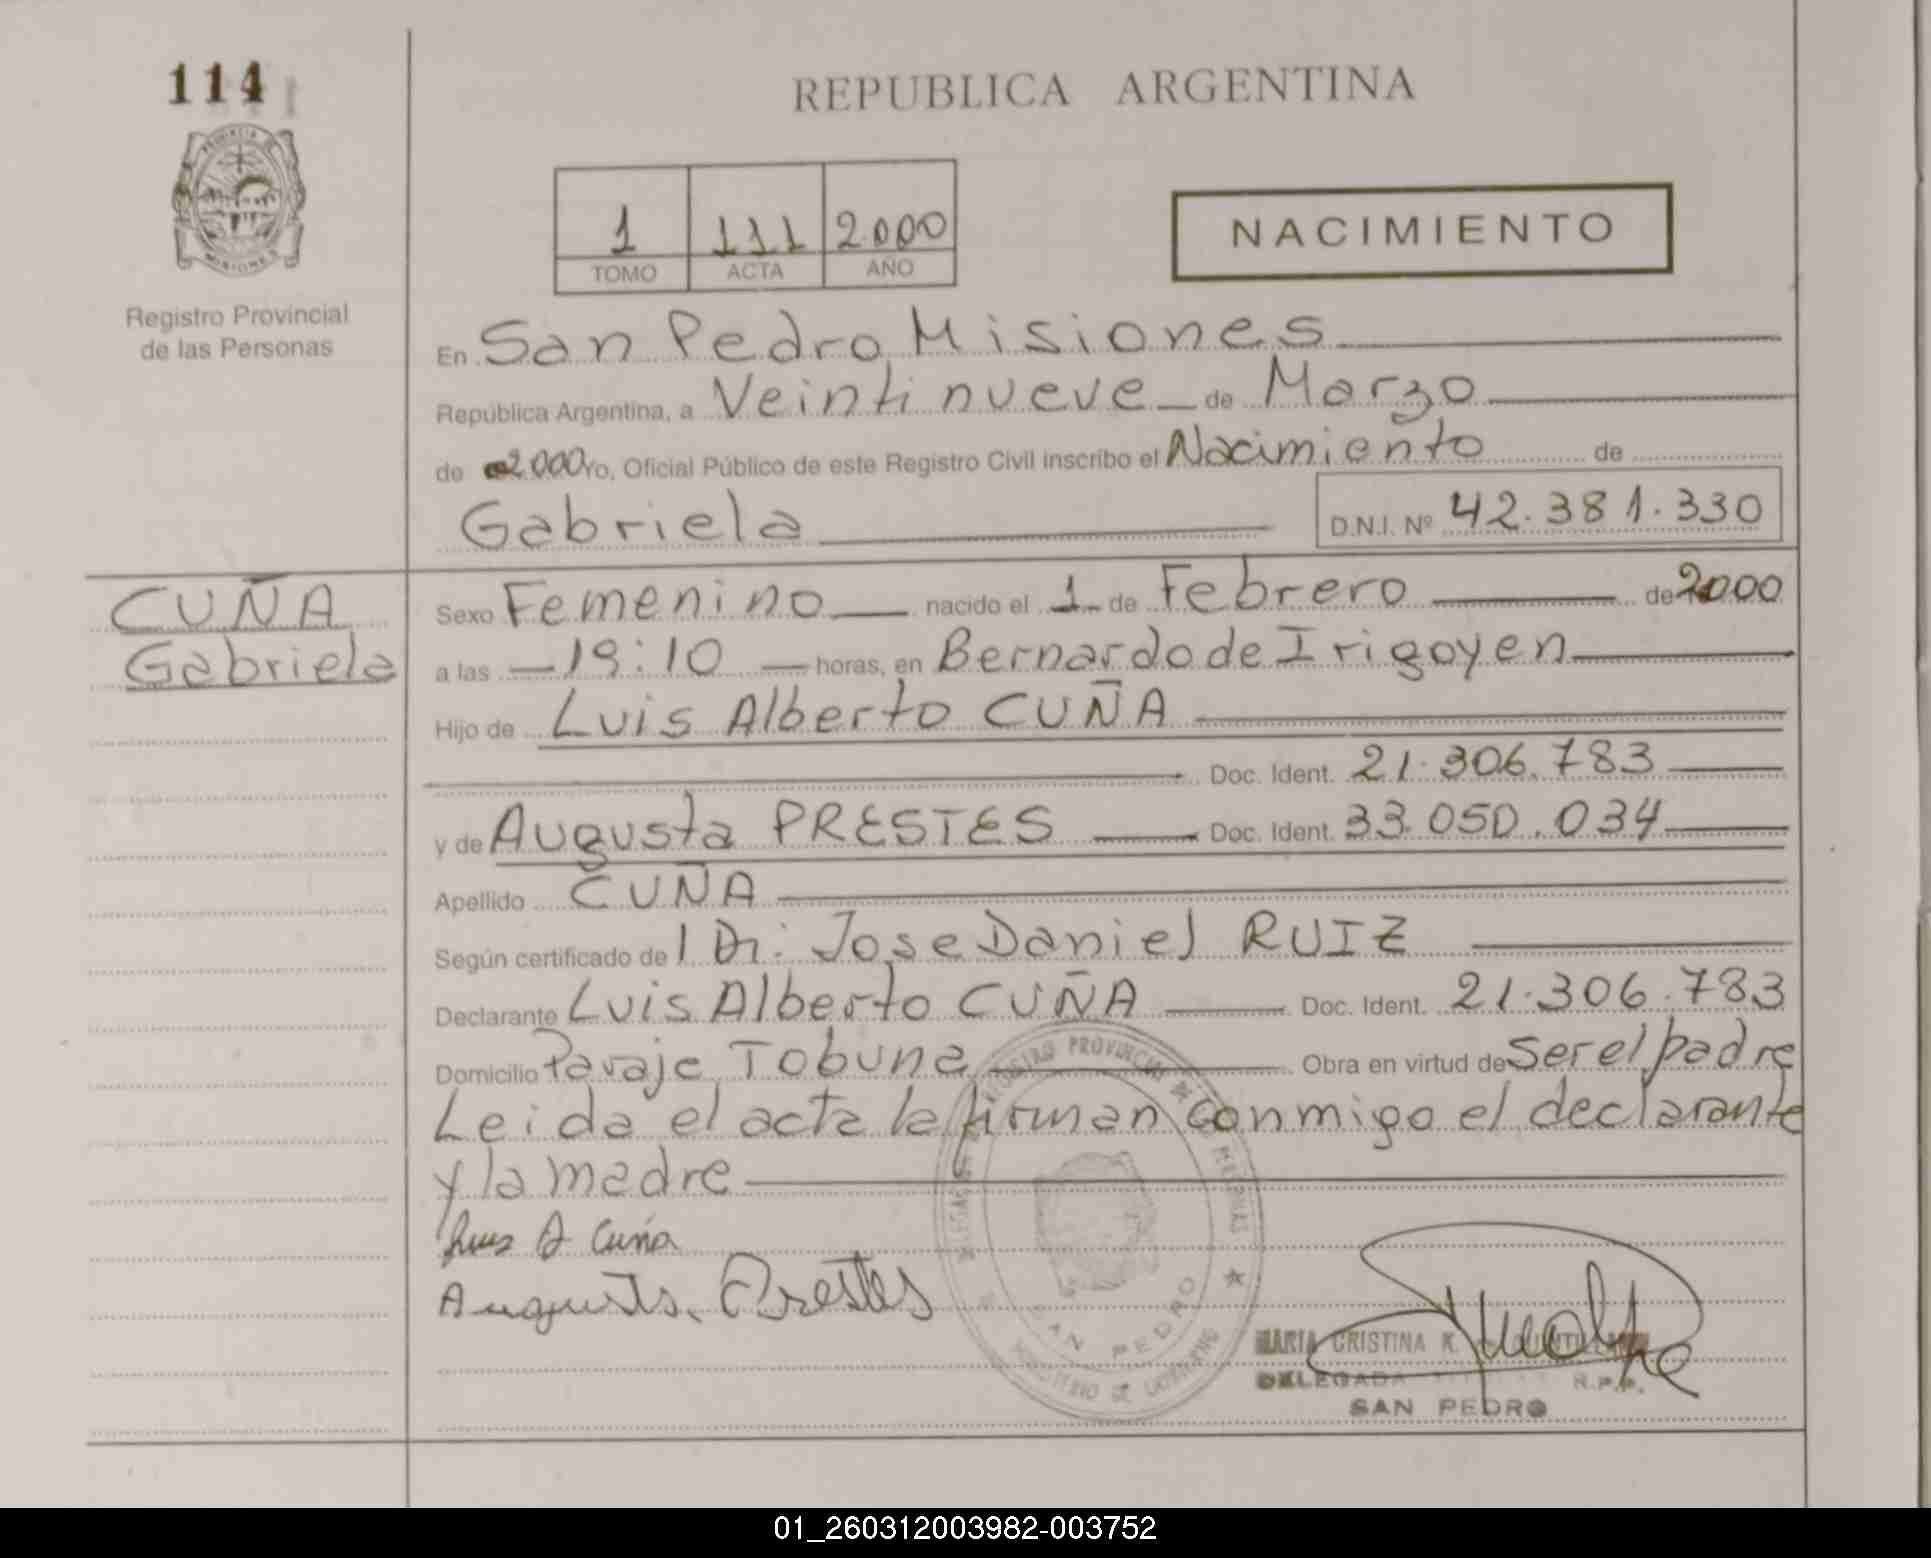 114
REPUBLICA ARGENTINA
PROVINCIA DE
MISIONES
Registro Provincial
de las Personas
1 111 2000
TOMO ACTA AÑO
NACIMIENTO
En San Pedro Misiones
República Argentina, a Veinti nueve de Marzo
de 2000 Yo, Oficial Público de este Registro Civil inscribo el Nacimiento de
Gabriela D.N.I. Nº 42.381.330
CUÑA
Gabriela
Sexo Femenino nacido el 1 de Febrero de 2000
a las 19:10 horas, en Bernardo de Irigoyen
Hijo de Luis Alberto CUÑA
Doc. Ident. 21.306.783
y de Augusta PRESTES Doc. Ident. 33.050.034
Apellido CUÑA
Según certificado de l Dr. Jose Daniel RUIZ
Declarante Luis Alberto CUÑA Doc. Ident. 21.306.783
Domicilio Paraje Tobuna Obra en virtud de ser el padre
Leida el acta la firman conmigo el declarante
y la madre
Luis A Cuña
Augusta Prestes
REGISTRO PROVINCIAL DE LAS PERSONAS
SAN PEDRO
MINISTERIO DE GOBIERNO
MARIA CRISTINA K.
DELEGADA R.P.P.
SAN PEDRO
01_260312003982-003752